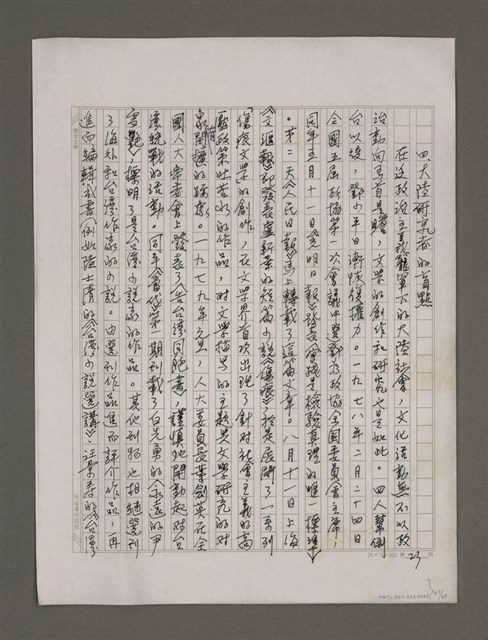 四、大陸研究者的盲點
在这政治主義籠罩下的大陸社會，文化活動無不以政
治動向馬首是瞻，文學的創作和研究也是如此。四人幫倒
台以後，鄧小平日漸恢復權力。一九七八年二月二十四日
全國五屆政協第一次會議中選鄧为政協全國委員會主席，
同年五月十一日《光明日報》發表〈實踐是檢驗真理的唯一標準〉
。第二天《人民日報》馬上轉載了這篇文章。八月十一日上海
《文滙報》即發表盧新華的短篇小說〈傷痕〉，於是展開了一系列
「傷痕文學」的創作，在文學界首次出現了針對社會主義的高
壓政策吐苦水的作品，对文學描写的主題與文學研究的对
象有開擴的跡象。一九七九年元旦，人大委員長葉劍英在全
國人大常委會上發表了〈告台灣同胞書〉，謹慎地開動起对台
灣統戰的活動。同年《當代》第一期刊載了白先勇的〈永遠的尹
雪艷〉，標明了是台灣小說家的作品。其他刊物也相繼選刊
了海外和台灣作家的小說。由選刊作品進而評介作品，再
進而編輯成書（例如陸士清的《台灣小說選講》、汪景壽的《台灣
25×12=300
23